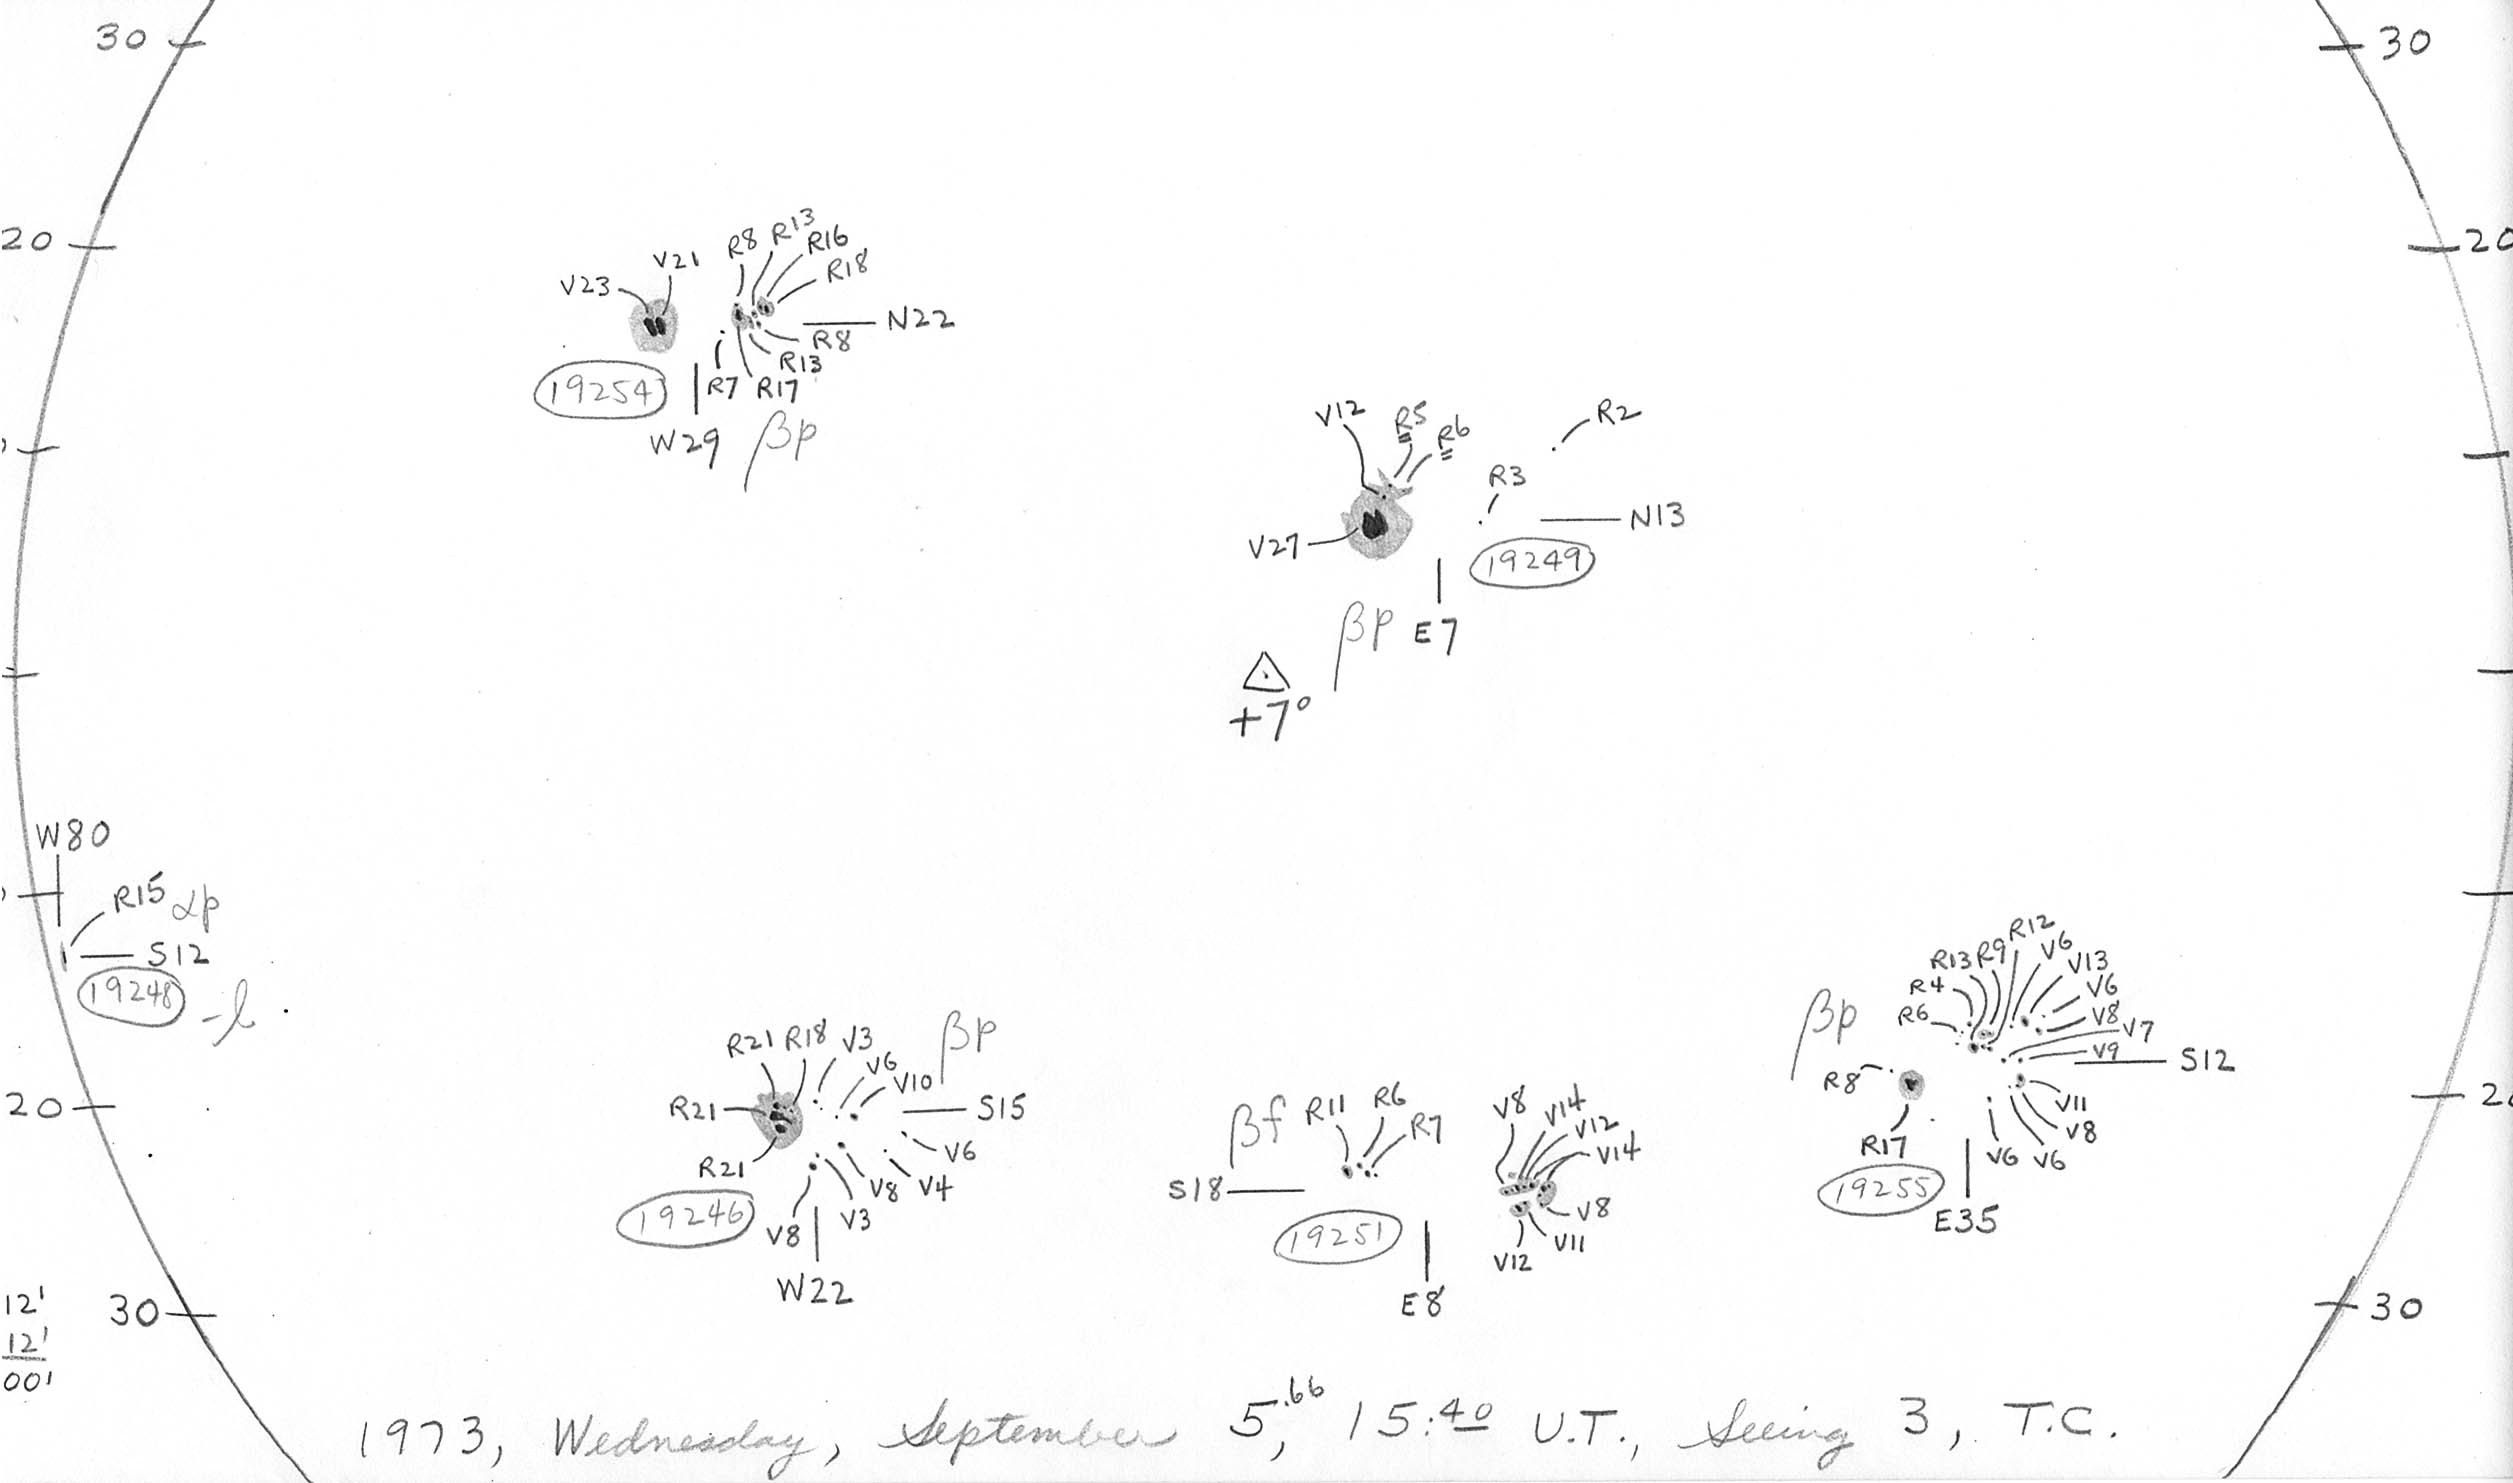 30
30
20
20
V23
V21
R8
R13
R16
R18
N22
R8
R13
R7
R17
19254
W29
βp
V12
R5
R6
R2
R3
N13
V27
19249
βp
E7
+7°
W80
R15
αp
S12
19248
-l
R21
R18
V3
V6
V10
βp
R21
S15
R21
V6
V8
V4
V8
V3
19246
W22
βf
R11
R6
R7
S18
19251
E8
V8
V14
V12
V14
V8
V11
V12
βp
R13
R9
R12
V6
V13
R4
V6
R6
V8
V7
V9
S12
R8
R17
V11
V8
V6
V6
19255
E35
20
12'
12'
00'
30
30
1973, Wednesday, September 5.66, 15:40 U.T., Seeing 3, T.C.